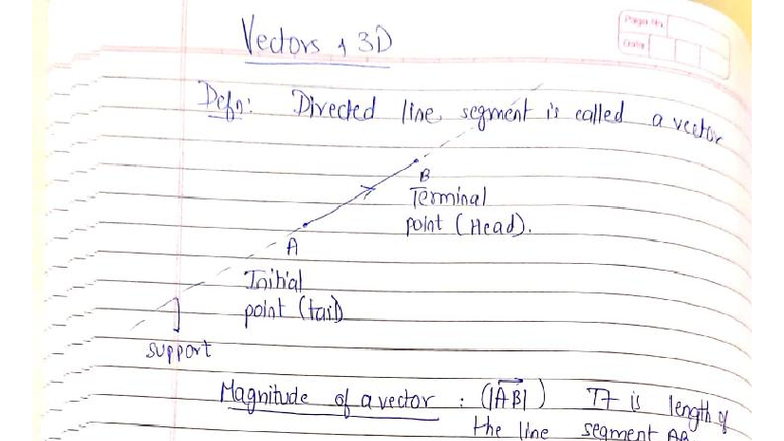 Vectors & 3D
Page No.
Date
Defn: Directed line segment is called a vector
B
Terminal
point (Head).
A
Initial
point (tail)
support
Magnitude of a vector : (|AB|) It is length of
the line segment